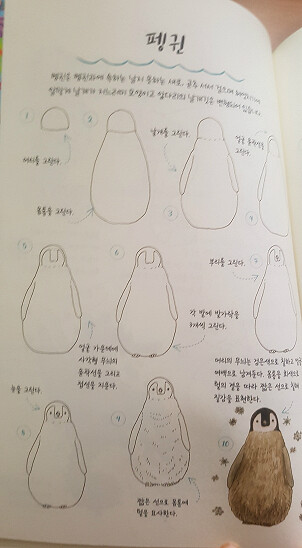 펭귄
펭귄은 펭귄과에 속하는 날지 못하는 새로, 곧추 서서 걸으며 헤엄치기에
알맞게 날개가 지느러미 모양이고 앞다리의 날개깃은 변형되어 있습니다.
1
머리를 그린다.
2
몸통을 그린다.
날개를 그린다.
3
얼굴 윤곽선을
그린다.
4
5
얼굴 가운데에
사각형 무늬의
윤곽선을 그리고
점선을 지운다.
6
각 발에 발가락을
3개씩 그린다.
부리를 그린다.
7
눈을 그린다.
8
9
짧은 선으로 몸통에
털을 묘사한다.
머리의 무늬는 검은색으로 칠하고
여백으로 남겨둔다. 몸통을 회색으로
털의 결을 따라 짧은 선으로
질감을 표현한다.
10